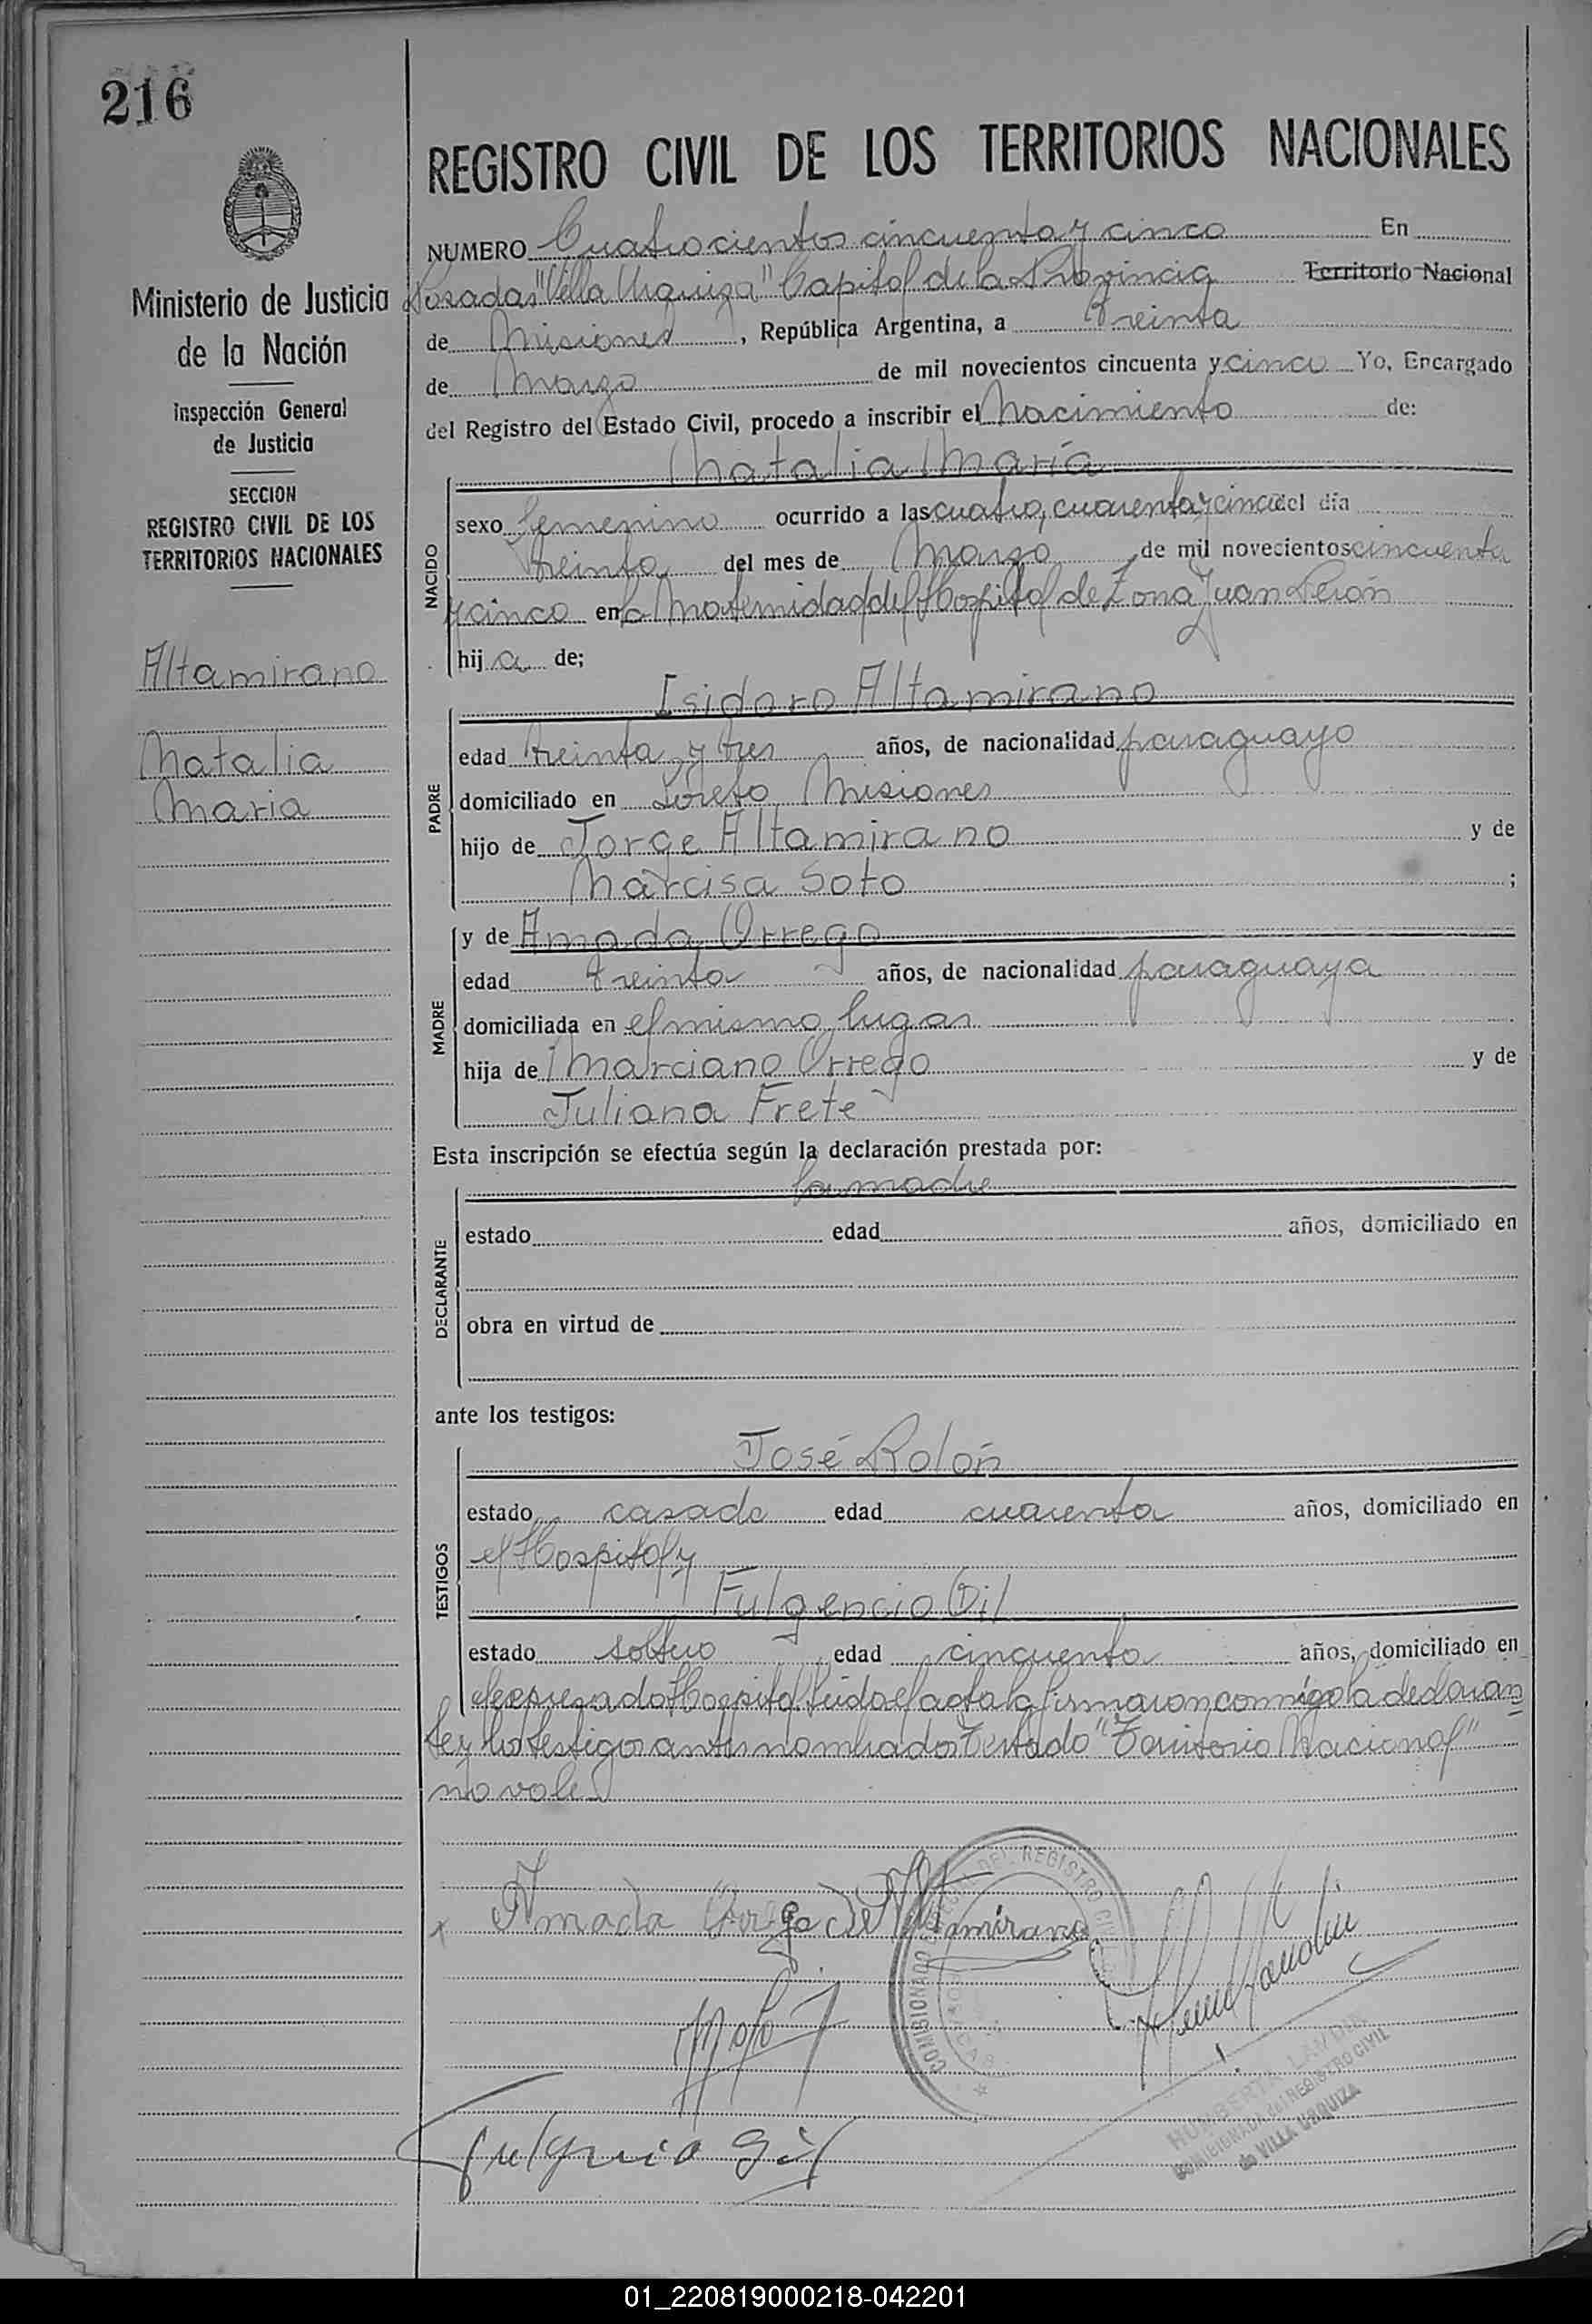 216
Ministerio de Justicia
de la Nación
Inspección General
de Justicia
SECCION
REGISTRO CIVIL DE LOS
TERRITORIOS NACIONALES
Altamirano
Natalia
María
REGISTRO CIVIL DE LOS TERRITORIOS NACIONALES
NUMERO Cuatrocientos cincuenta y cinco En
Posadas "Villa Urquiza" Capital de la Provincia Territorio Nacional
de Misiones, República Argentina, a Treinta
de Marzo de mil novecientos cincuenta y cinco Yo, Encargado
del Registro del Estado Civil, procedo a inscribir el Nacimiento de:
Natalia María
NACIDO
sexo femenino ocurrido a las cuatro, cuarenta y cinco del día
treinta del mes de Marzo de mil novecientos cincuenta
y cinco en la Maternidad del Hospital de Zona Juan Perón
hija de;
Isidoro Altamirano
PADRE
edad treinta y tres años, de nacionalidad paraguayo
domiciliado en Loreto Misiones
hijo de Jorge Altamirano y de
Narcisa Soto ;
y de Amada Orrego
MADRE
edad treinta años, de nacionalidad paraguaya
domiciliada en el mismo lugar
hija de Marciano Orrego y de
Juliana Frete
Esta inscripción se efectúa según la declaración prestada por:
la madre
DECLARANTE
estado edad años, domiciliado en
obra en virtud de
ante los testigos:
José Rolón
TESTIGOS
estado casado edad cuarenta años, domiciliado en
el Hospital y
Fulgencio Gil
estado soltero edad cincuenta años, domiciliado en
el expresado Hospital. Leída el acta la firmaron conmigo la declaran
te y los testigos antes nombrados Testado "Territorio Nacional"
no vale
Amada Orrego de Altamirano
COMISIONADO DEL REGISTRO CIVIL
Fulgencio Gil
HUMBERTO LANDI
COMISIONADO del REGISTRO CIVIL
de VILLA URQUIZA
01_220819000218-042201